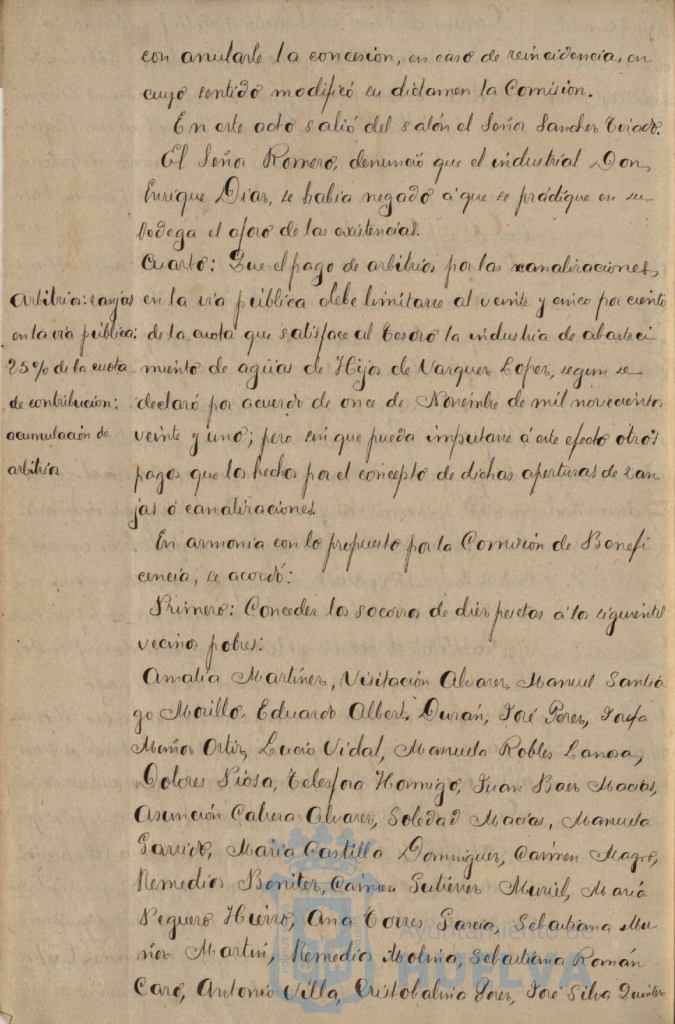 con anularle la concesión, en caso de reincidencia, en
cuyo sentido modificó su dictamen la Comision.
En este acto salió del salón el Señor Sanchez Tirado.
El Señor Romero, denunció que el industrial Don
Enrique Diaz, se habia negado á que se práctique en su
bodega el aforo de las existencias.
Cuarto: Que el pago de arbitrios por las canalizaciones
en la via pública debe limitarse al veinte y cinco por ciento
de la cuota que satisface al Tesoro la industria de abasteci
miento de aguas de Hijos de Vazquez Lopez, segun se
declaró por acuerdo de once de Noviembre de mil novecientos
veinte y uno; pero sin que pueda imputarse á este efecto otros
pagos que los hechos por el concepto de dichas aperturas de zan
jas ó canalizaciones.
Arbitrios: zanjas
en la via pública:
25% de la cuota
de contribucion:
acumulación de
arbitrios
En armonia con lo propuesto por la Comisión de Benefi
cencia, se acordó:
Primero: Conceder los socorros de diez pesetas á los siguientes
vecinos pobres:
Amalia Martinez, Visitación Alvarez, Manuel Santia
go Morillo, Eduardo Albert Durán, José Perez, Josefa
Muñoz Ortiz, Lucio Vidal, Manuela Robles Lanosa,
Dolores Piosa, Telesfora Hormigo, Juan Baez Macias,
Asunción Cabera Alvarez, Soledad Macias, Manuela
Garrido, Maria Castilla Dominguez, Carmen Magro,
Remedios Benitez, Carmen Gutiérrez Muriel, Maria
Peguero Hierro, Ana Torres Garcia, Sebastiana Mu-
ñoz Martin, Remedios Molina, Sebastiana Román
Caro, Antonio Villa, Cristobalina Perez, José Silva Quintero
Ayuntamiento de
HUELVA